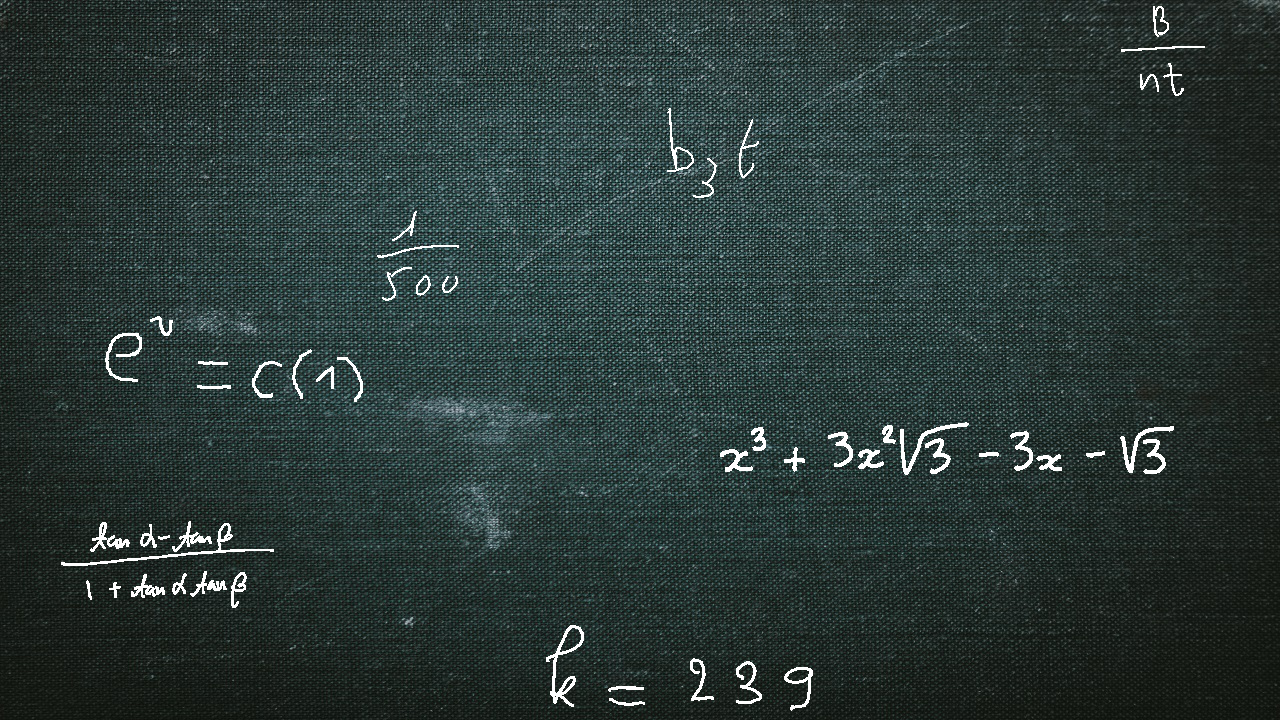 \frac{B}{nt}
b_3 t
\frac{1}{500}
e^v = c(1)
x^3 + 3x^2\sqrt{3} - 3x - \sqrt{3}
\frac{\tan \alpha - \tan \beta}{1 + \tan \alpha \tan \beta}
k = 239